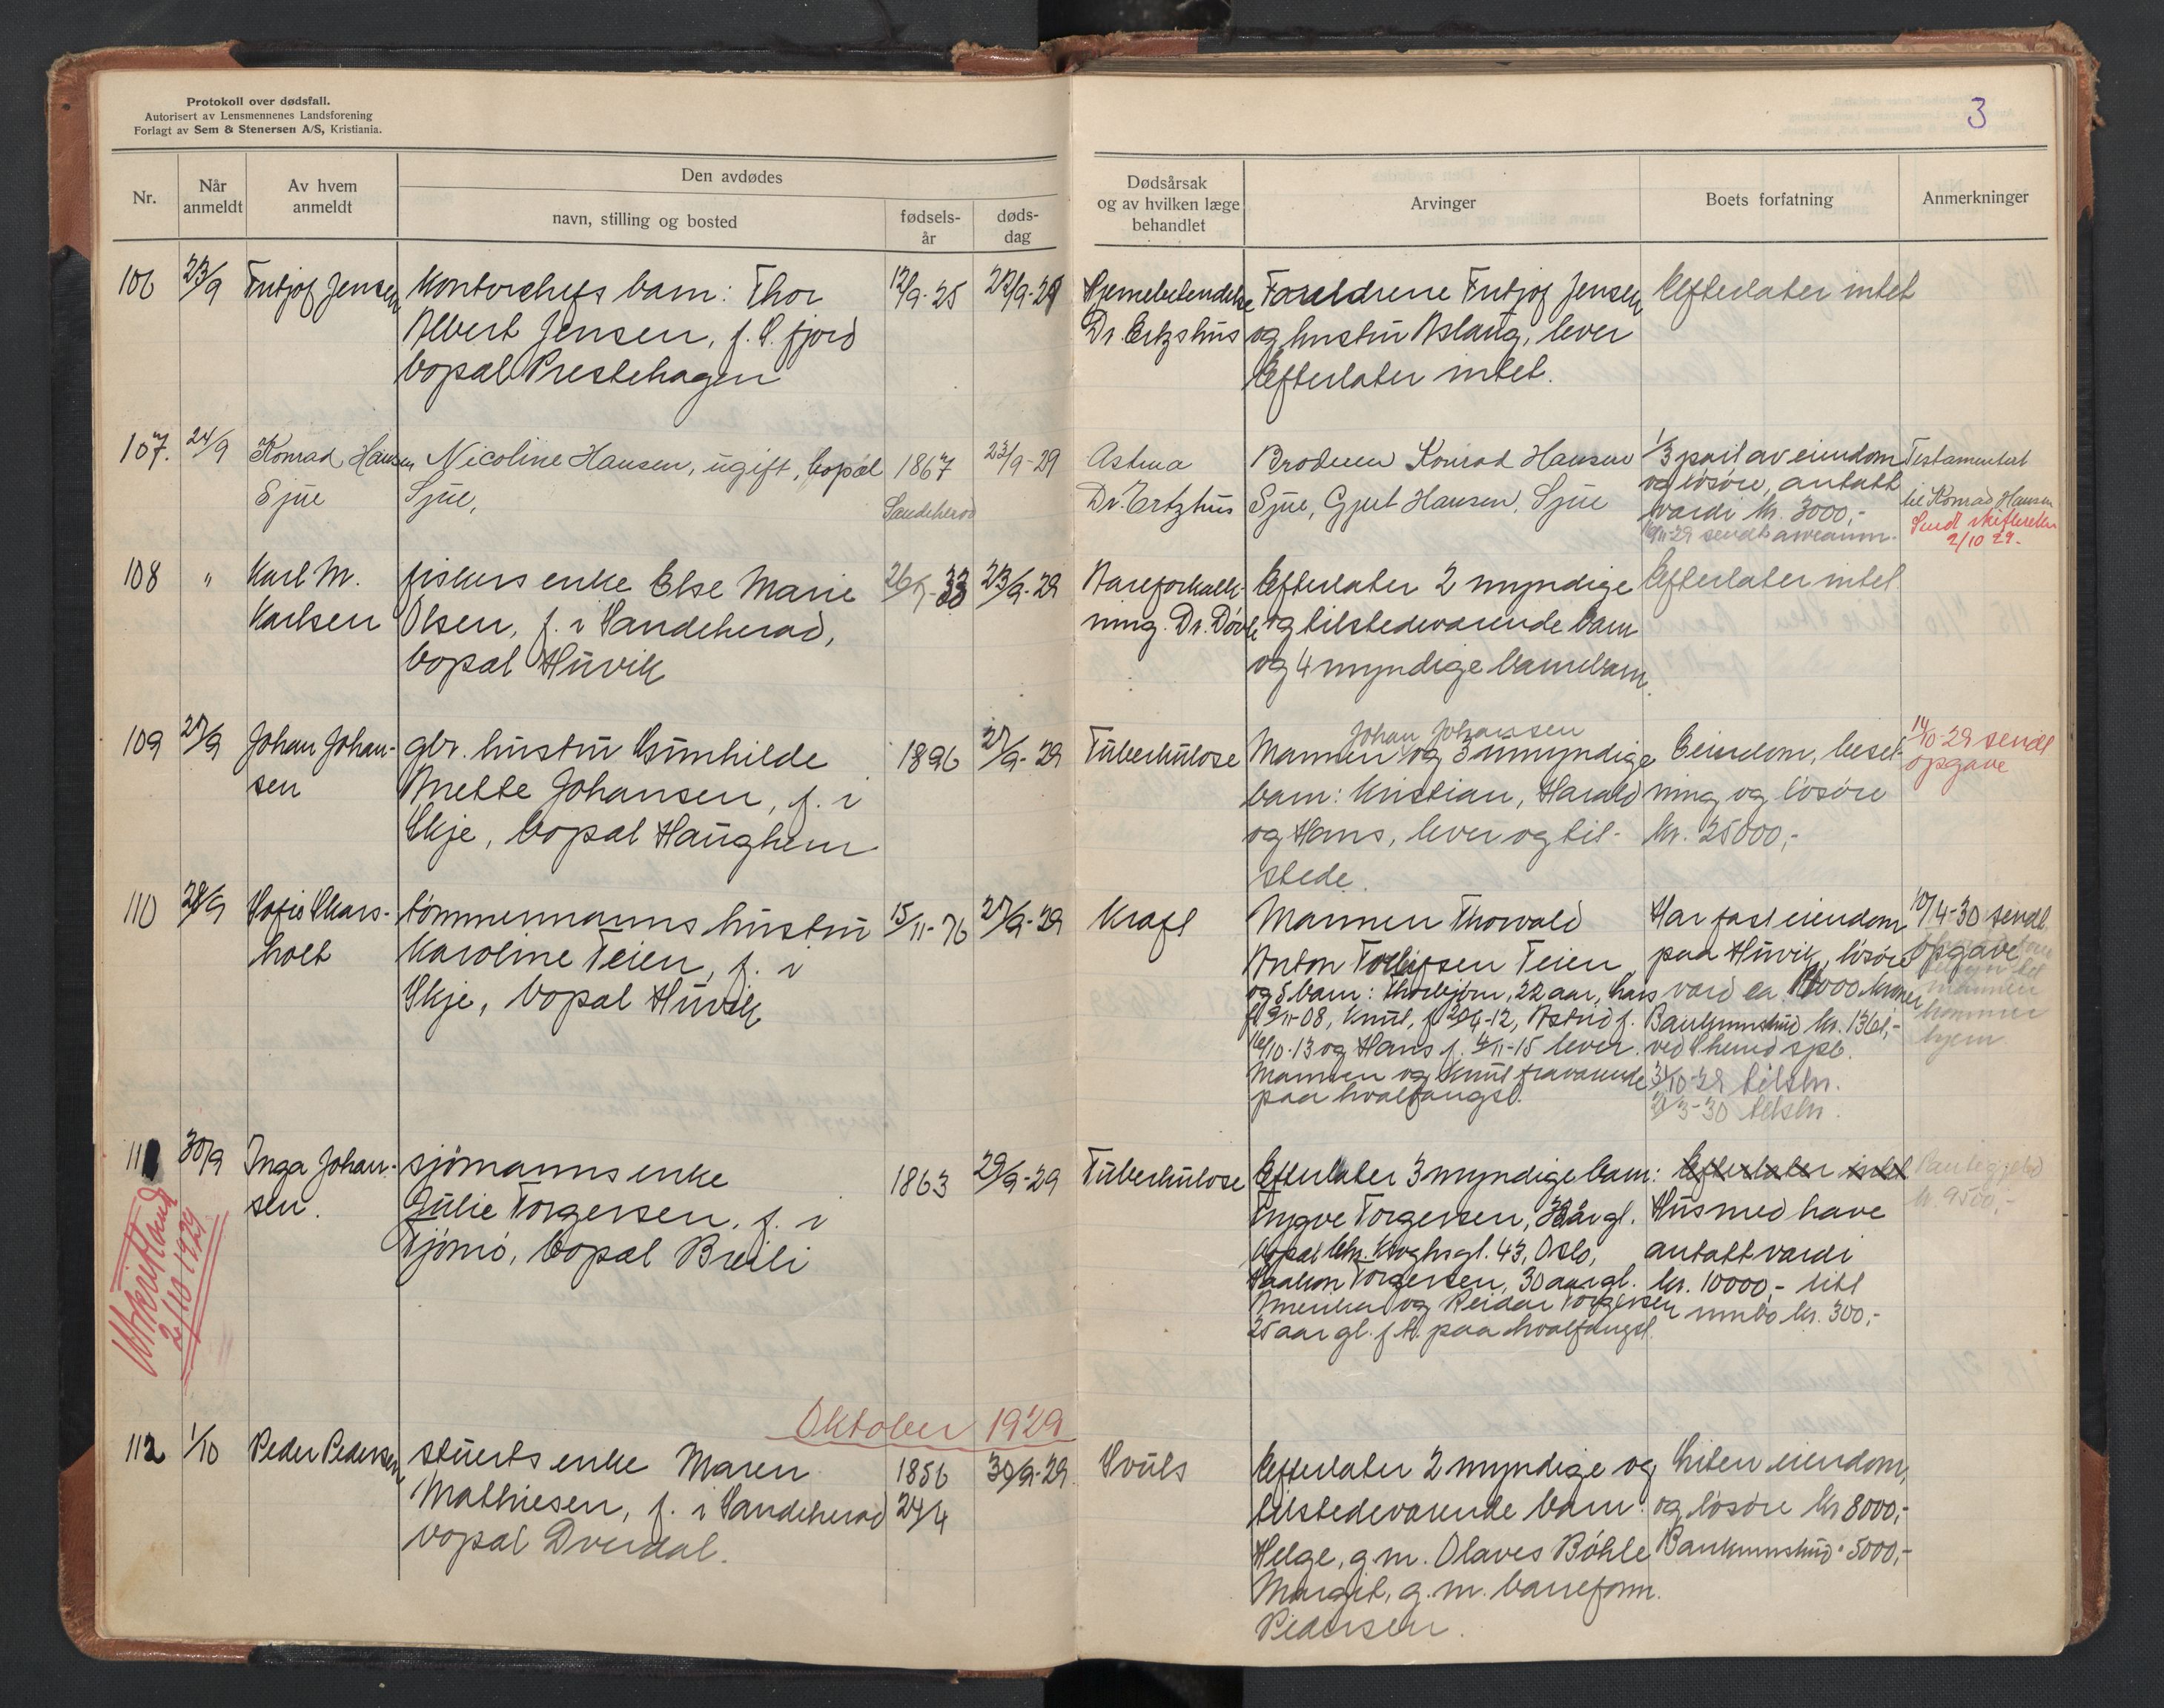 Protokoll over dødsfall.
Autorisert av Lensmennenes Landsforening
Forlagt av Sem & Stenersen A/S, Kristiania.
3
Nr.
Når anmeldt
Av hvem anmeldt
Den avdødes
navn, stilling og bosted
fødsels-år
døds-dag
Dødsårsak og av hvilken læge behandlet
Arvinger
Boets forfatning
Anmerkninger
106 23/9 Fritjof Jensen Kontorchefs barn: Thor 12/9-25 22/9-29 Hjernebetendelse Forældrene Fritjof Jensen Efterlater intet
Albert Jensen, f. S. fjord Dr. Ertzshus og hustru Aslaug, lever
bopæl Prestehagen Efterlater intet.
107. 24/9 Konrad Hansen Nicoline Hansen, ugift, bopæl 1867 23/9-29 Astma Broderen Konrad Hansen 1/3 part av eiendom Testamentert
Sjue Sjue, Sandeherad Dr. Ertzhus Sjue, Gjert Hansen, Sjue og løsøre, antatt til Konrad Hansen
værdi kr. 3000,- Sendt skifteretten
-29 sendt 2/10 29.
108 " Karl M. fiskers enke Else Marie 33 23/9-29 Aareforkalk- Efterlater 2 myndige Efterlater intet
Karlsen Olsen, f. i Sandeherad, ning. Dr. og tilstedeværende barn
bopæl Huvik og 4 myndige barnebarn.
Johan Johansen
109 27/9 Johan Johan- gbr. hustru Gunhilde 1896 27/9-29 Tuberkulose Mannen og 3 umyndige Eiendom, beset- 14/10-29 sendt
sen Mette Johansen, f. i barn: Kristian, Harald ning og løsøre opgave
Skje, bopæl Haughem og Hans, lever og til- kr. 25000,-
stede.
110 28/9 Sofie Skars- tømmermanns hustru 15/11-76 27/9-29 Kræft Mannen Thorvald Har fast eiendom 10/4-30 sendt
holt Karoline Teien, f. i Anton Tollefsen Teien paa Huvik, løsøre opgave
Skje, bopæl Huvik og 5 barn: Thorbjørn, 22 aar, Lars værd ca. kroner mannen
f. 9/11-08, Knut, f. 20/4-12, Astrid f. Bankinnskud kr. 1361,- kommer
16/10-13 og Hans f. 4/11-15 lever. ved Skiend spb. hjem
Mannen og Knut fraværende 31/10-29 tilskr.
paa hvalfangst. 3-30 tilskr.
111 30/9 Inga Johan- sjømanns enke 1863 29/9-29 Tuberkulose Efterlater 3 myndige barn: Efterlater intet Pantegjeld
sen. Julie Torgersen, f. i Yngve Torgersen, aar gl. Hus med have kr. 9500,-
Tjømø, bopæl Breili bopæl Chr. Kroghsgt. 43, Oslo, antatt værdi
Haakon Torgersen, 30 aar gl. kr. 10000,- litt
Amerika og Reidar Torgersen innbo kr. 300,-
25 aar gl. f. t. paa hvalfangst.
Utskrift
2/10 1929
Oktober 1929
112 1/10 Peder Pedersen stuerts enke Maren 1856 30/9-29 Svulst Efterlater 2 myndige og Liten eiendom,
Mathiesen, f. i Sandeherad 24/4 tilstedeværende barn: og løsøre kr 8000,-
bopæl Dverdal. Helge, g. m. Olaves Bøhle Bankinnskud " 5000,-
Margit, g. m. barneform.
Pedersen.